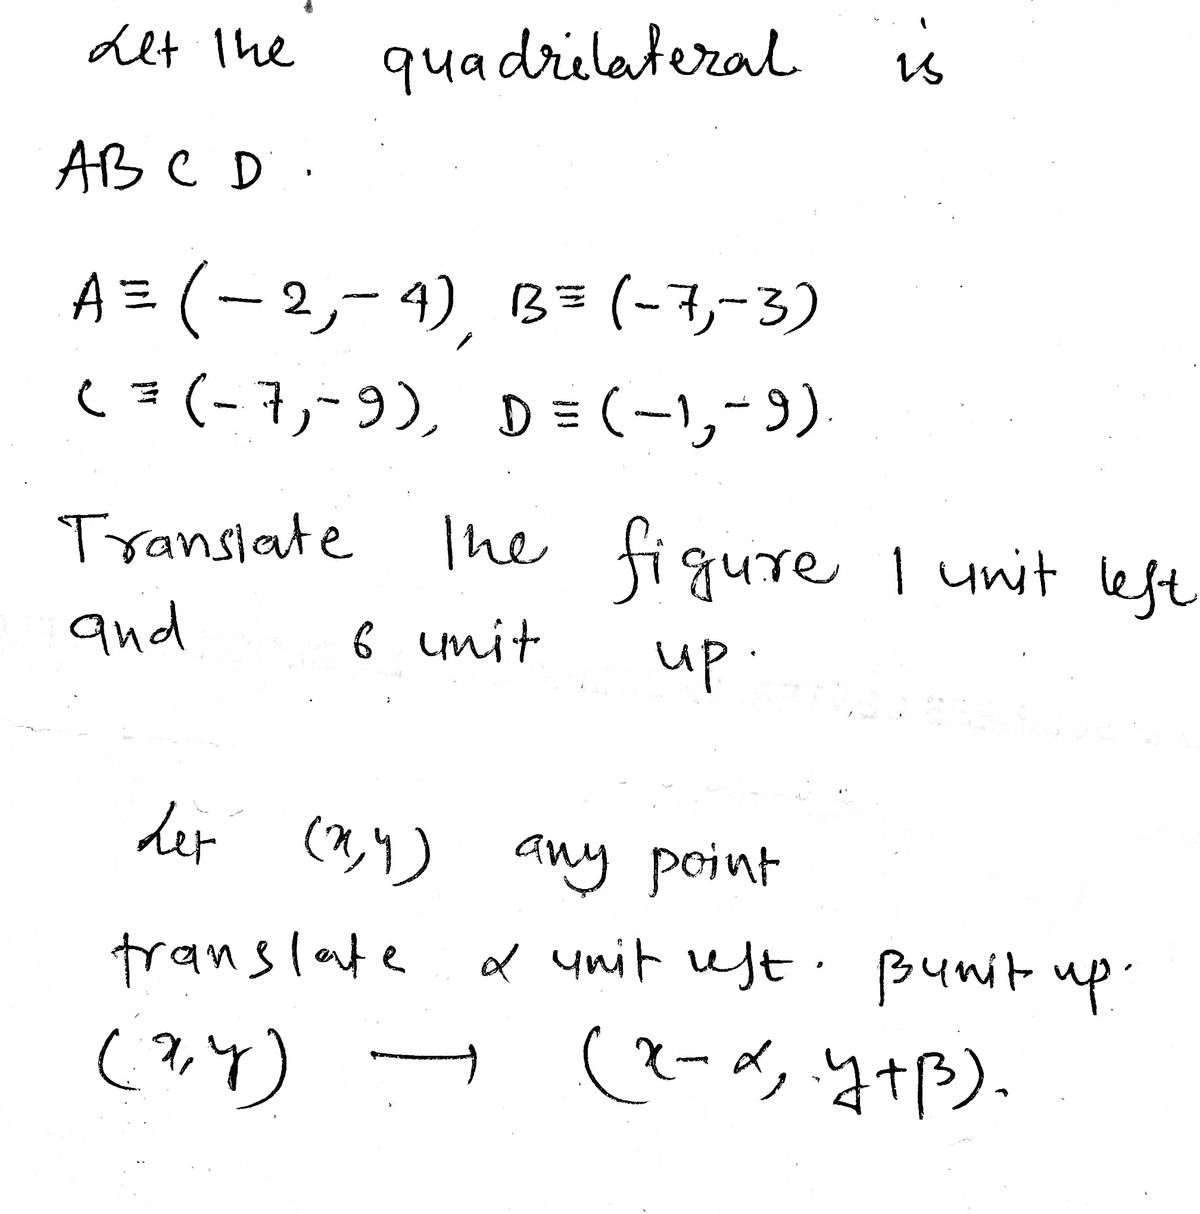 Let the quadrilateral is
ABCD.
A≡(-2,-4), B≡(-7,-3)
C≡(-7,-9), D≡(-1,-9).
Translate the figure 1 unit left
and 6 unit up.
Let (x,y) any point
translate α unit left. β unit up.
(x,y) ⟶ (x-α, y+β).